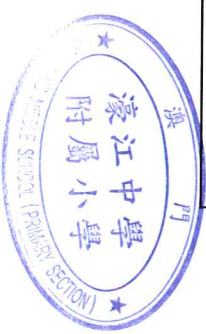 澳門
濠江中學
附屬小學
MIDDLE SCHOOL (PRIMARY SECTION)